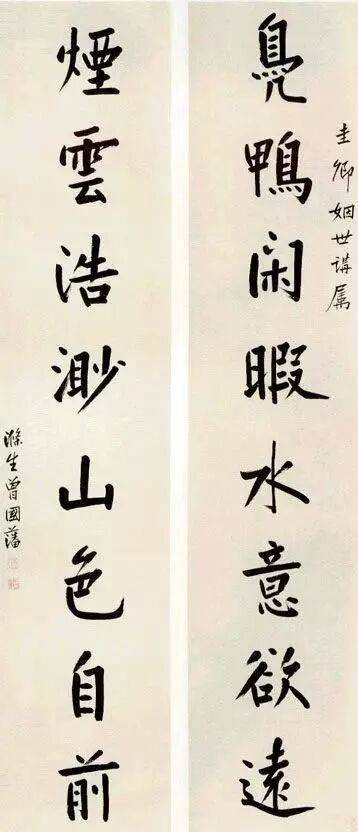 圭卿姻世講属
鳧鴨闲暇水意欲遠
煙雲浩渺山色自前
滌生曾國藩